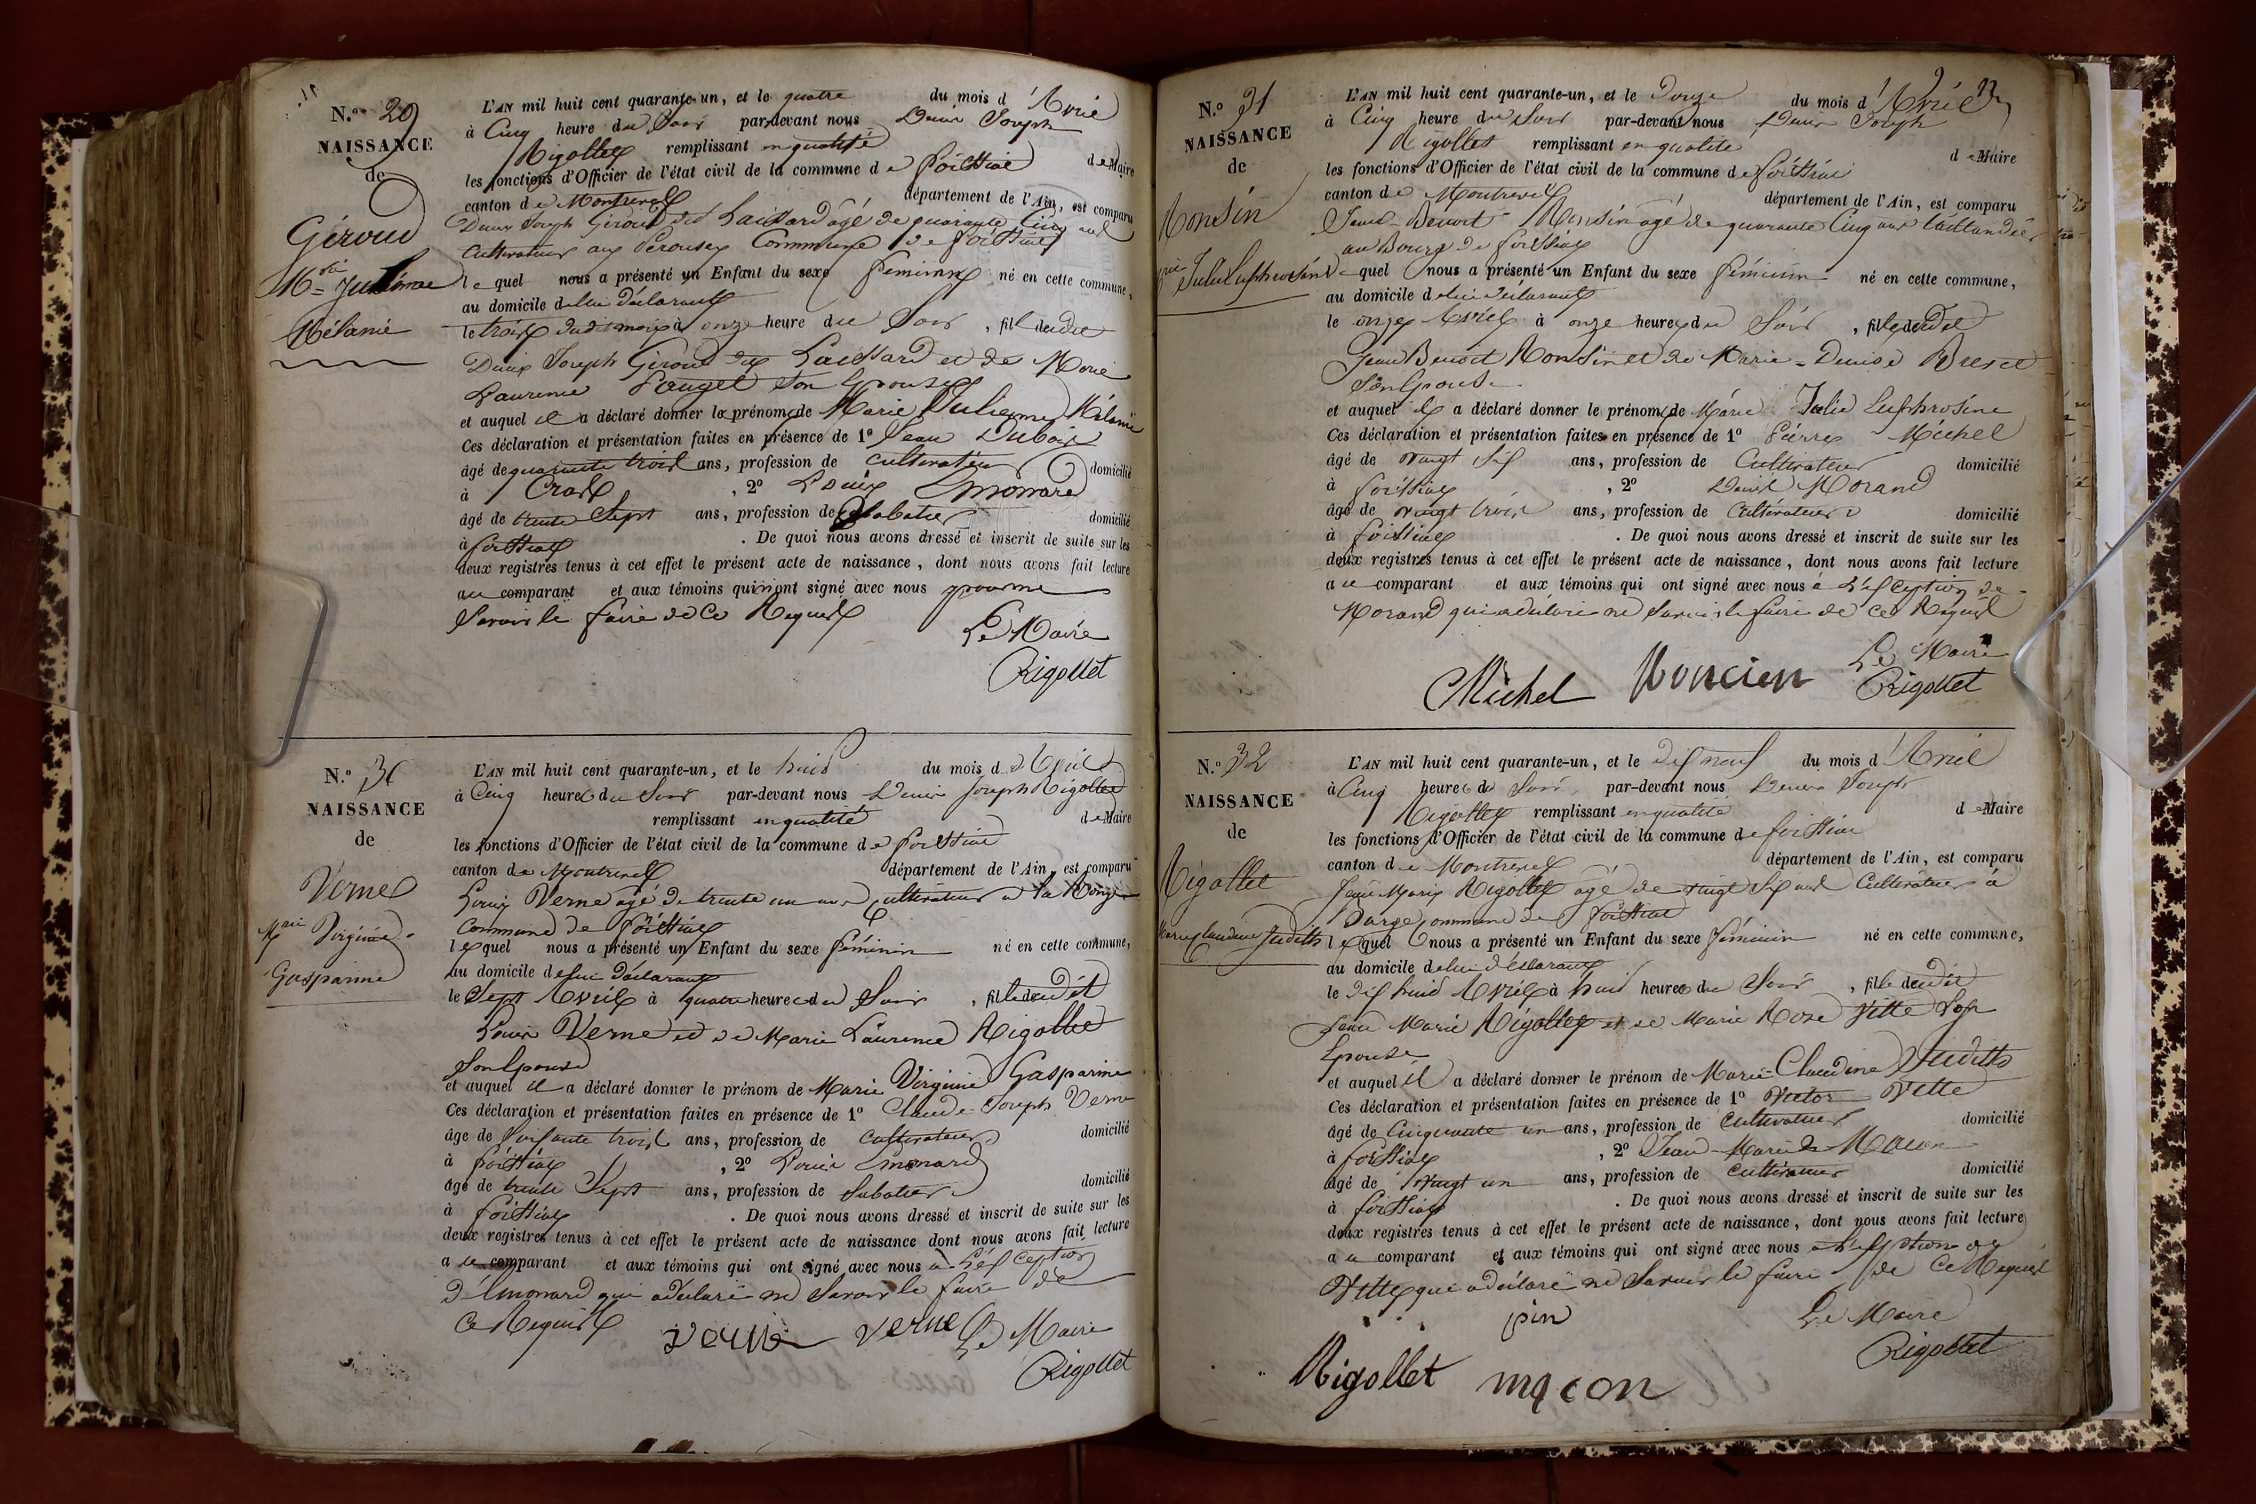 N.° 29
NAISSANCE
de
Géroud
Mrie Julienne
Mélanie
L'AN mil huit cent quarante-un, et le quatre du mois d'Avril
à Cinq heure du Soir par-devant nous Denis Joseph
Rigollet remplissant en qualité de Maire
les fonctions d'Officier de l'état civil de la commune de foissiat
canton de Montrevel département de l'Ain, est comparu
Denis Joseph Géroud dit Laissard âgé de quarante Cinq ans
Cultivateur aux Pérouses Commune de foissiat
lequel nous a présenté un Enfant du sexe feminin né en cette commune,
au domicile de lui déclarant
le trois dudit mois à onze heure du Soir, fille dudit
Denis Joseph Géroud dit Laissard et de Marie
Laurence Pauget son Epouse
et auquel il a déclaré donner le prénom de Marie Julienne Mélanie
Ces déclaration et présentation faites en présence de 1° Jean Dubois
âgé de quarante trois ans, profession de cultivateur domicilié
à Cras, 2° Louis Emonard
âgé de trente Sept ans, profession de Sabotier domicilié
à foissiat. De quoi nous avons dressé et inscrit de suite sur les
deux registres tenus à cet effet le présent acte de naissance, dont nous avons fait lecture
au comparant et aux témoins qui n'ont signé avec nous pour ne
Savoir le faire de Ce Requis
Le Maire
Rigollet
N.° 30
NAISSANCE
de
Verne
Mrie Virginie
Gasparine
L'AN mil huit cent quarante-un, et le huit du mois d'Avril
à Cinq heure du Soir par-devant nous Denis Joseph Rigollet
remplissant en qualité de Maire
les fonctions d'Officier de l'état civil de la commune de foissiat
canton de Montrevel département de l'Ain, est comparu
Louis Verne âgé de trente un ans cultivateur à la
Commune de foissiat
lequel nous a présenté un Enfant du sexe féminin né en cette commune,
au domicile de lui déclarant
le Sept Avril à quatre heure du Soir, fille dudit
Louis Verne et de Marie Laurence Rigollet
Son Epouse
et auquel il a déclaré donner le prénom de Marie Virginie Gasparine
Ces déclaration et présentation faites en présence de 1° Claude Joseph Verne
âge de Soixante trois ans, profession de cultivateur domicilié
à foissiat, 2° Louis Emonard
âgé de trente Sept ans, profession de Sabotier domicilié
à foissiat. De quoi nous avons dressé et inscrit de suite sur les
deux registres tenus à cet effet le présent acte de naissance dont nous avons fait lecture
au comparant et aux témoins qui ont signé avec nous à L'exception
d'Emonard qui a déclaré ne Savoir le faire de
Ce Requis
verne verne Le Maire
Rigollet
N.° 31
NAISSANCE
de
Monsin
Mrie Julie Euphrosine
L'AN mil huit cent quarante-un, et le Douze du mois d'Avril
à Cinq heure du Soir par-devant nous Denis Joseph
Rigollet remplissant en qualité de Maire
les fonctions d'Officier de l'état civil de la commune de foissiat
canton de Montrevel département de l'Ain, est comparu
Jean Benoit Monsin âgé de quarante Cinq ans taillandier
au Bourg de foissiat
lequel nous a présenté un Enfant du sexe féminin né en cette commune,
au domicile de lui déclarant
le onze Avril à onze heure du Soir, fille dudit
Jean Benoit Monsin et de Marie-Denise Bresct
Son Epouse
et auquel il a déclaré donner le prénom de Marie Julie Euphrosine
Ces déclaration et présentation faites en présence de 1° Pierre Michel
âgé de vingt Six ans, profession de Cultivateur domicilié
à foissiat, 2° Denis Morand
âgé de vingt trois ans, profession de Cultivateur domicilié
à foissiat. De quoi nous avons dressé et inscrit de suite sur les
deux registres tenus à cet effet le présent acte de naissance, dont nous avons fait lecture
au comparant et aux témoins qui ont signé avec nous à L'exception de
Morand qui a déclaré ne Savoir le faire de Ce Requis
Le Maire
Michel Moncien Rigollet
N.° 32
NAISSANCE
de
Rigollet
Marie Claudine Judith
L'AN mil huit cent quarante-un, et le dix neuf du mois d'Avril
à Cinq heure du Soir, par-devant nous Denis Joseph
Rigollet remplissant en qualité de Maire
les fonctions d'Officier de l'état civil de la commune de foissiat
canton de Montrevel département de l'Ain, est comparu
Jean Marie Rigollet âgé de vingt Six ans Cultivateur à
commune de foissiat
lequel nous a présenté un Enfant du sexe féminin né en cette commune,
au domicile de lui déclarant
le dix huit Avril à huit heure du Soir, fille dudit
Jean Marie Rigollet et de Marie Rose Vitte Son
Epouse
et auquel il a déclaré donner le prénom de Marie Claudine Judith
Ces déclaration et présentation faites en présence de 1° Victor Vitte
âgé de Cinquante un ans, profession de cultivateur domicilié
à foissiat, 2° Jean Marie Macon
âgé de vingt un ans, profession de cultivateur domicilié
à foissiat. De quoi nous avons dressé et inscrit de suite sur les
deux registres tenus à cet effet le présent acte de naissance, dont nous avons fait lecture
au comparant et aux témoins qui ont signé avec nous à L'exception de
Vitte qui a déclaré ne Savoir le faire de Ce Requis
Le Maire
Rigollet macon Rigollet